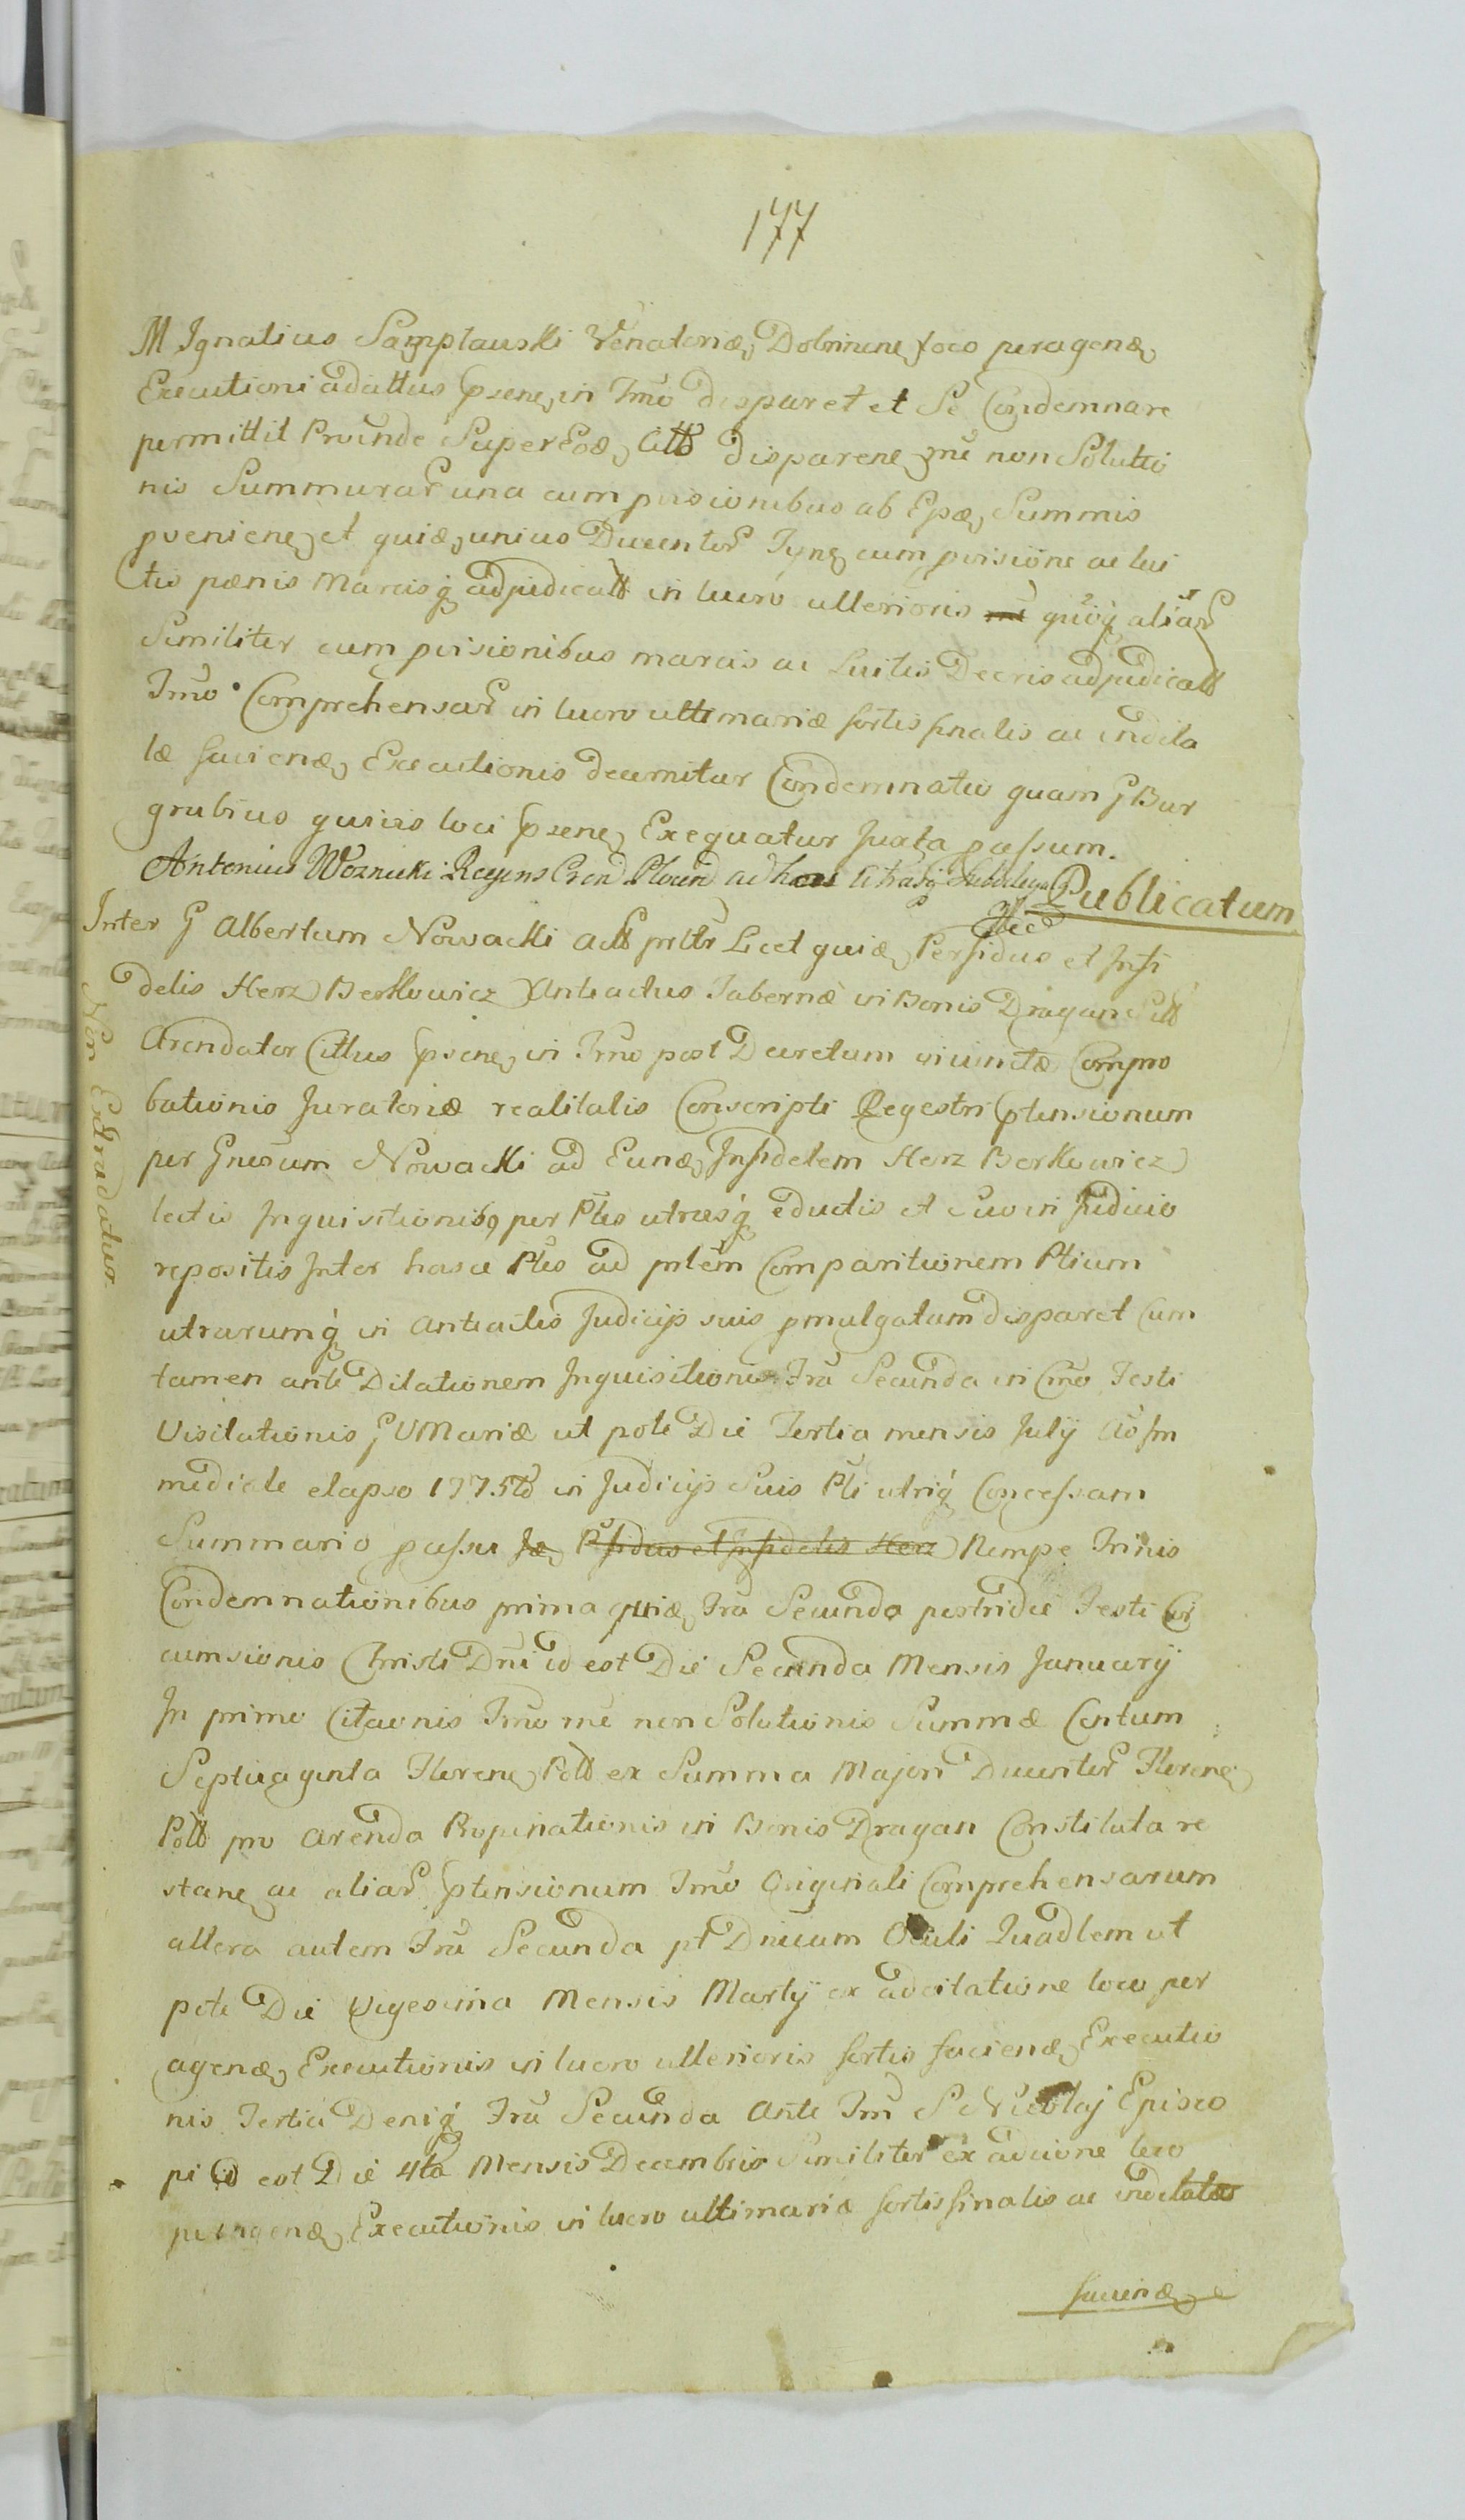 177
M Ignatius Samplawski Venatoriæ Dobrinen loco peragenæ
Executioni adcittus psene in Tmo disparet et Se Condemnare
permittit Proinde Super Eoæ Citto disparene me non Solutio
nis Summarar una cum pvisionibus ab Epæ Summis
pvenient et quiæ unius Ducentor Tynf cum pvisione ac lui
tis pænis Marcisq adjudicatt in lucro ulterioris quoq aliar
Similiter cum pvisionibus marcis ac Luitis Decris adjudicatt
Tmo Comprehensar in lucro ultimariæ sortis finalis ac indila
tæ facienæ Executionis decernitur Condemnatio quam G Bur
grabius quivis loci psene Exequatur Juxta passum.
Antonius Woznicki Regens Cren Plocen ad has
Publicatum
Inter G Albertum Nowacki Actt prltr Licet quiæ Perfidus et Infi
delis Herz Berkowicz Anteactus Tabernæ in Bonis Dragan Sitt
Arendator Cittus psene in Tmo post Decretum Compro
bationis Juratoriæ realitatis Conscripti Regestri ptensionum
per Gnerum Nowacki ad Eunæ Infidelem Herz Berkowicz
lectis Inquisitionibq per Ptes utrasq eductis et suo in Judicio
repositis Inter hasce Ptes ad prltem Comparitionem Ptium
utrarumq in anteactis Judicijs suis pmulgatum disparet Cum
tamen ante Dilationem Inquisitionis Fra Secunda in Cmo Festi
Visitationis G V Mariæ ut pote Die Tertia mensis Julij Ao Im
mediate elapso 1775to in Judicijs Suis Pti utriq Concessam
Summario passu Jæ Pfidus et Infidelis Herz Nempe Trinis
Condemnationibus prima quiæ Fra Secunda postridie Festi Cir
cumsionis Christi Dni id est Die Secunda Mensis Januarij
In primo Citaonis Tmo me non Solutionis Summæ Centum
Septuaginta Florene Poltt ex Summa Majori Ducentor Florene
Poltt pro Arenda Propinationis in Bonis Dragan Constituta re
stane ac aliar ptensionum Tmo Originali Comprehensarum
altera autem Fra Secunda pt Dnicum Oculi Quadlem ut
pote Die Vigesima Mensis Martij ex adcitatione loco per
agenæ Executionis in lucro ulterioris sortis facienæ Executio
nis Tertia Deniq Fra Secunda Ante Fm S Nicolaj Episco
pi id est Die 4ta Mensis Decembris Similiter ex adcione loco
peragenæ Executionis in lucro ultimariæ sortis finalis ac indilatæ
facienæ
Non Extradatur